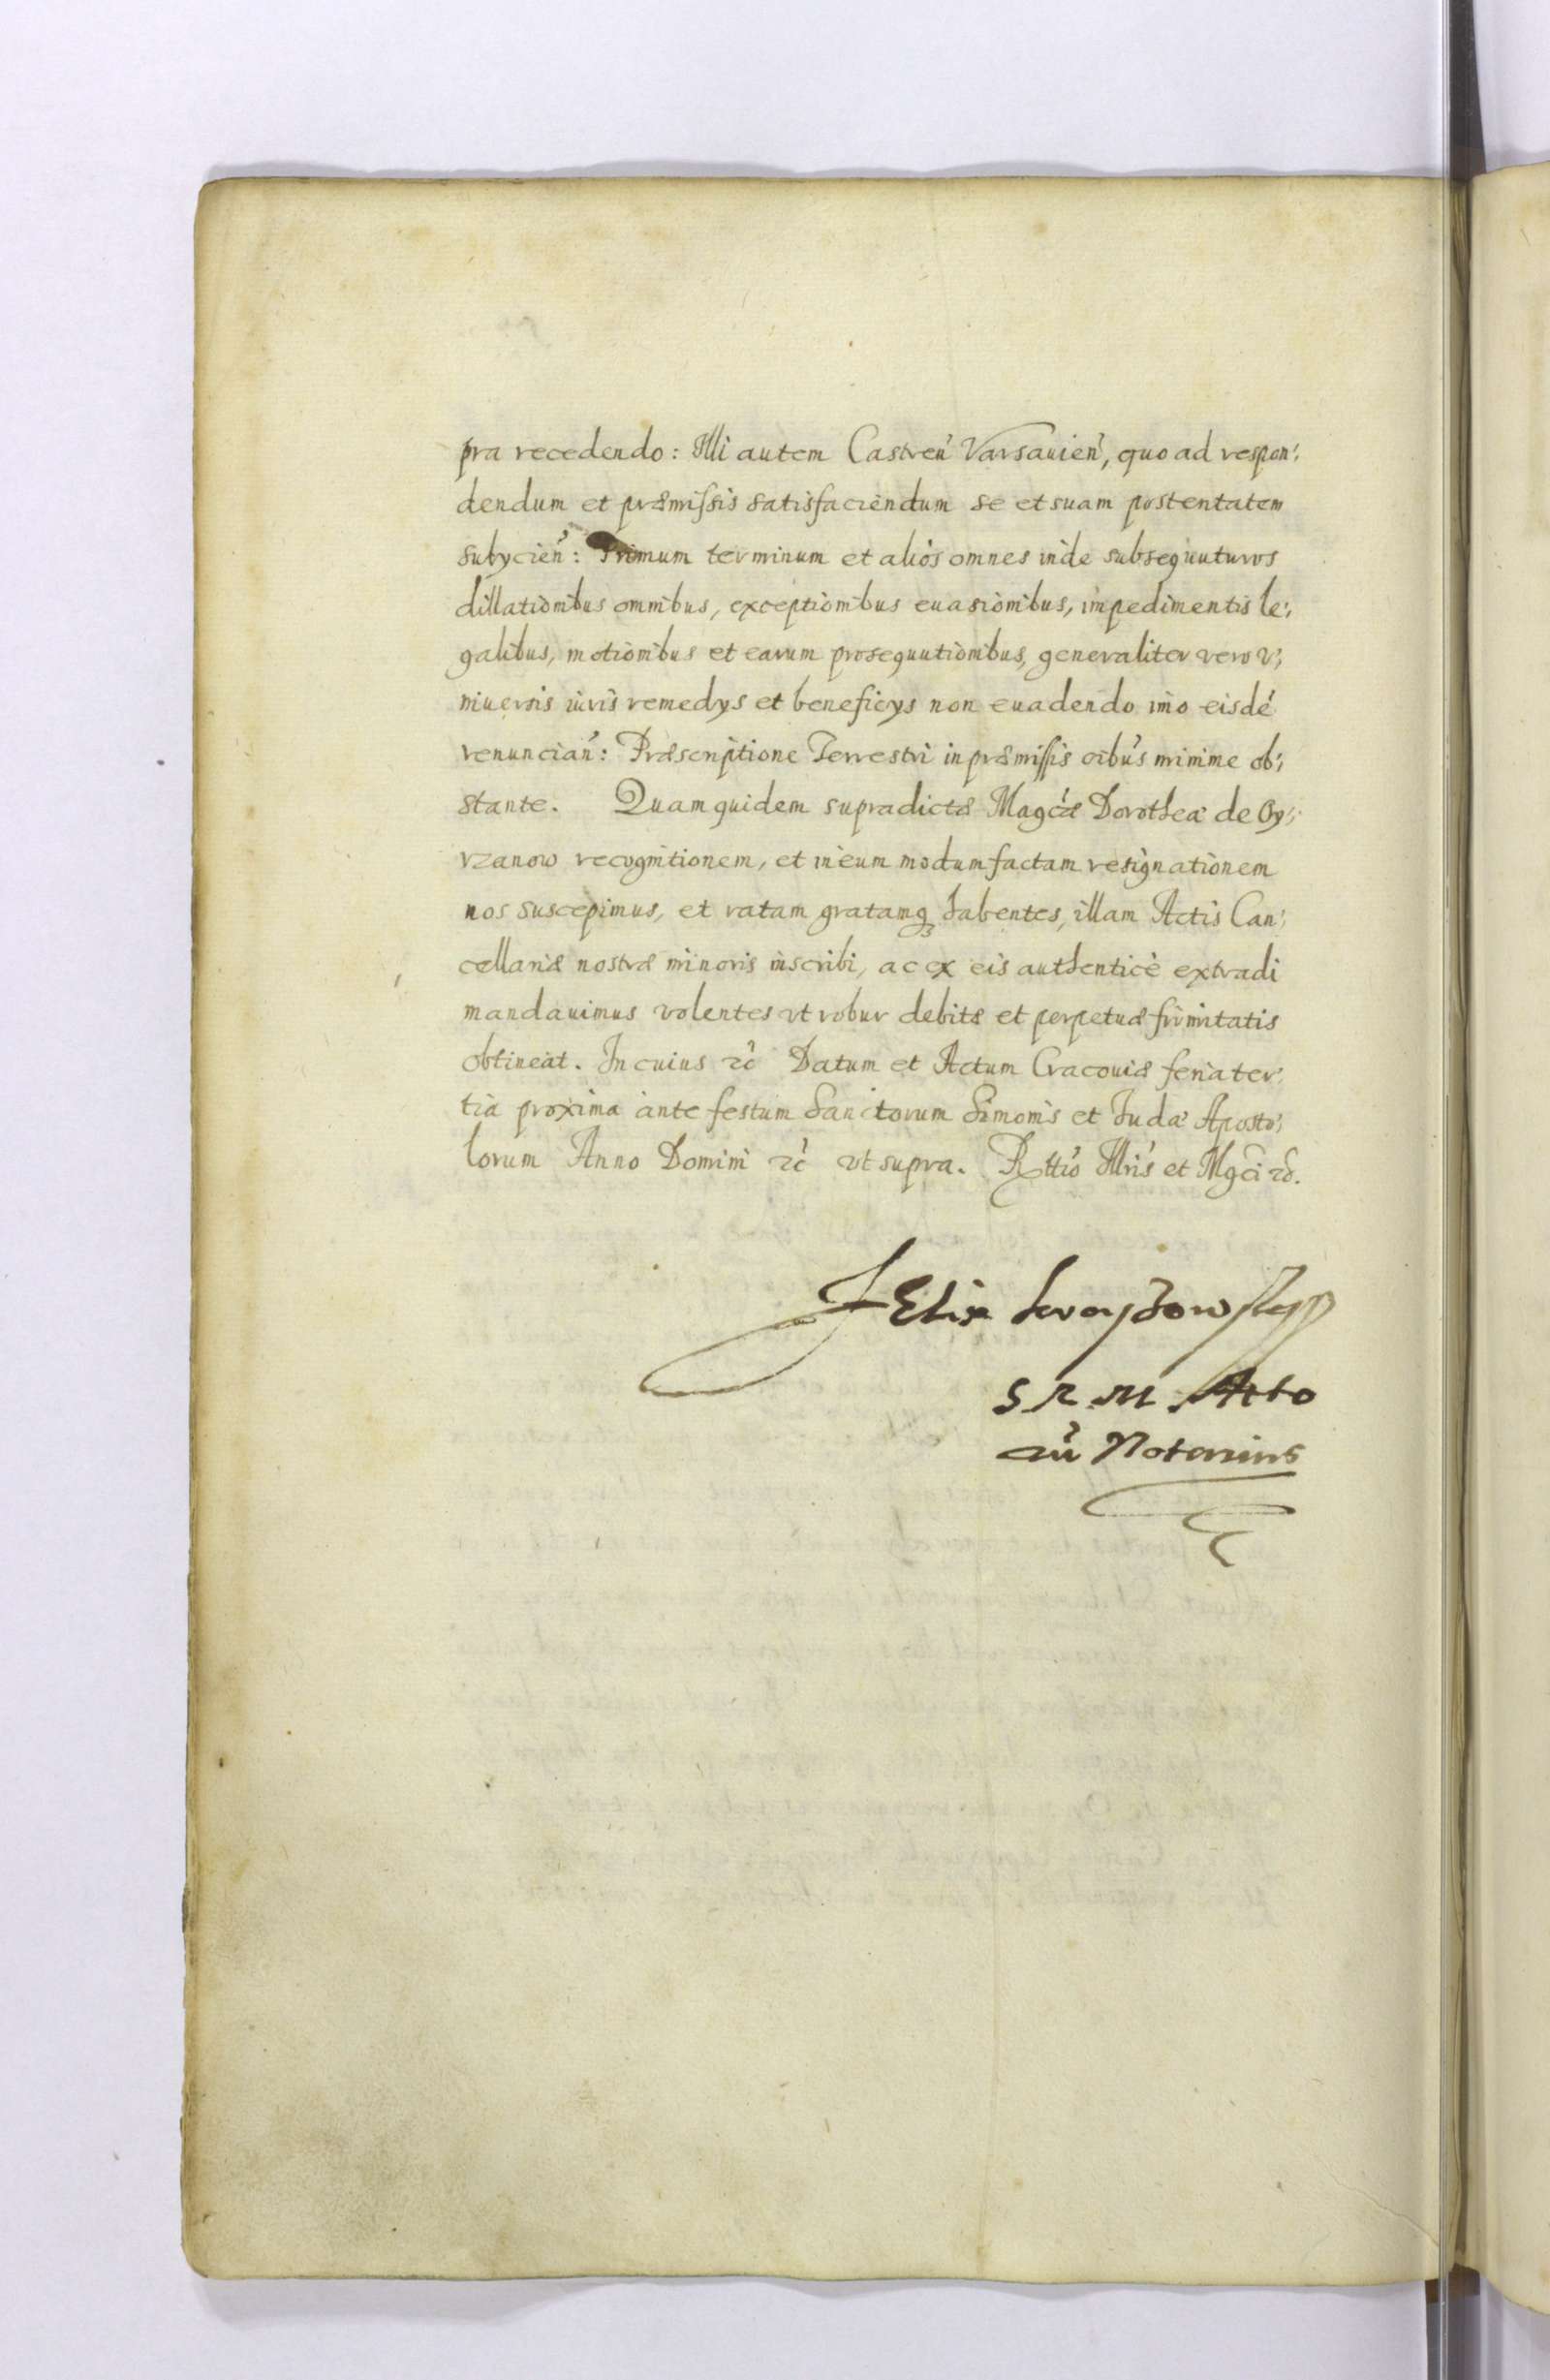 pra recedendo: Illi autem Castreń Varsauień, quo ad respon:
dendum et præmissis satisfaciendum se et suam postentatem
subycień: Primum terminum et alios omnes inde subsequuturos
dillationibus omnibus, exceptionibus euasionibus, impedimentis le:
galibus, motionibus et earum prosequutionibus, generaliter vero v:
niuersis iuris remedys et beneficys non euadendo imo eisdé
renunciań: Præscriptione Terrestri in præmissis oibus minime ob:
stante. Quam quidem supradictæ Magcæ Dorotheæ de Oy:
rzanow recognitionem, et in eum modum factam resignationem
nos suscepimus, et ratam gratamq habentes, illam Actis Can:
cellariæ nostræ minoris inscribi, ac ex eis authenticè extradi
mandauimus volentes vt robur debitæ et perpetuæ firmitatis
obtineat. In cuius rć Datum et Actum Cracouiæ feria ter:
tia proxima ante festum Sanctorum Simonis et Iudæ Aposto:
lorum Anno Domini rć vt supra. Rttio Illris et Mgci
FElix
S R M Acto
rū Notarius